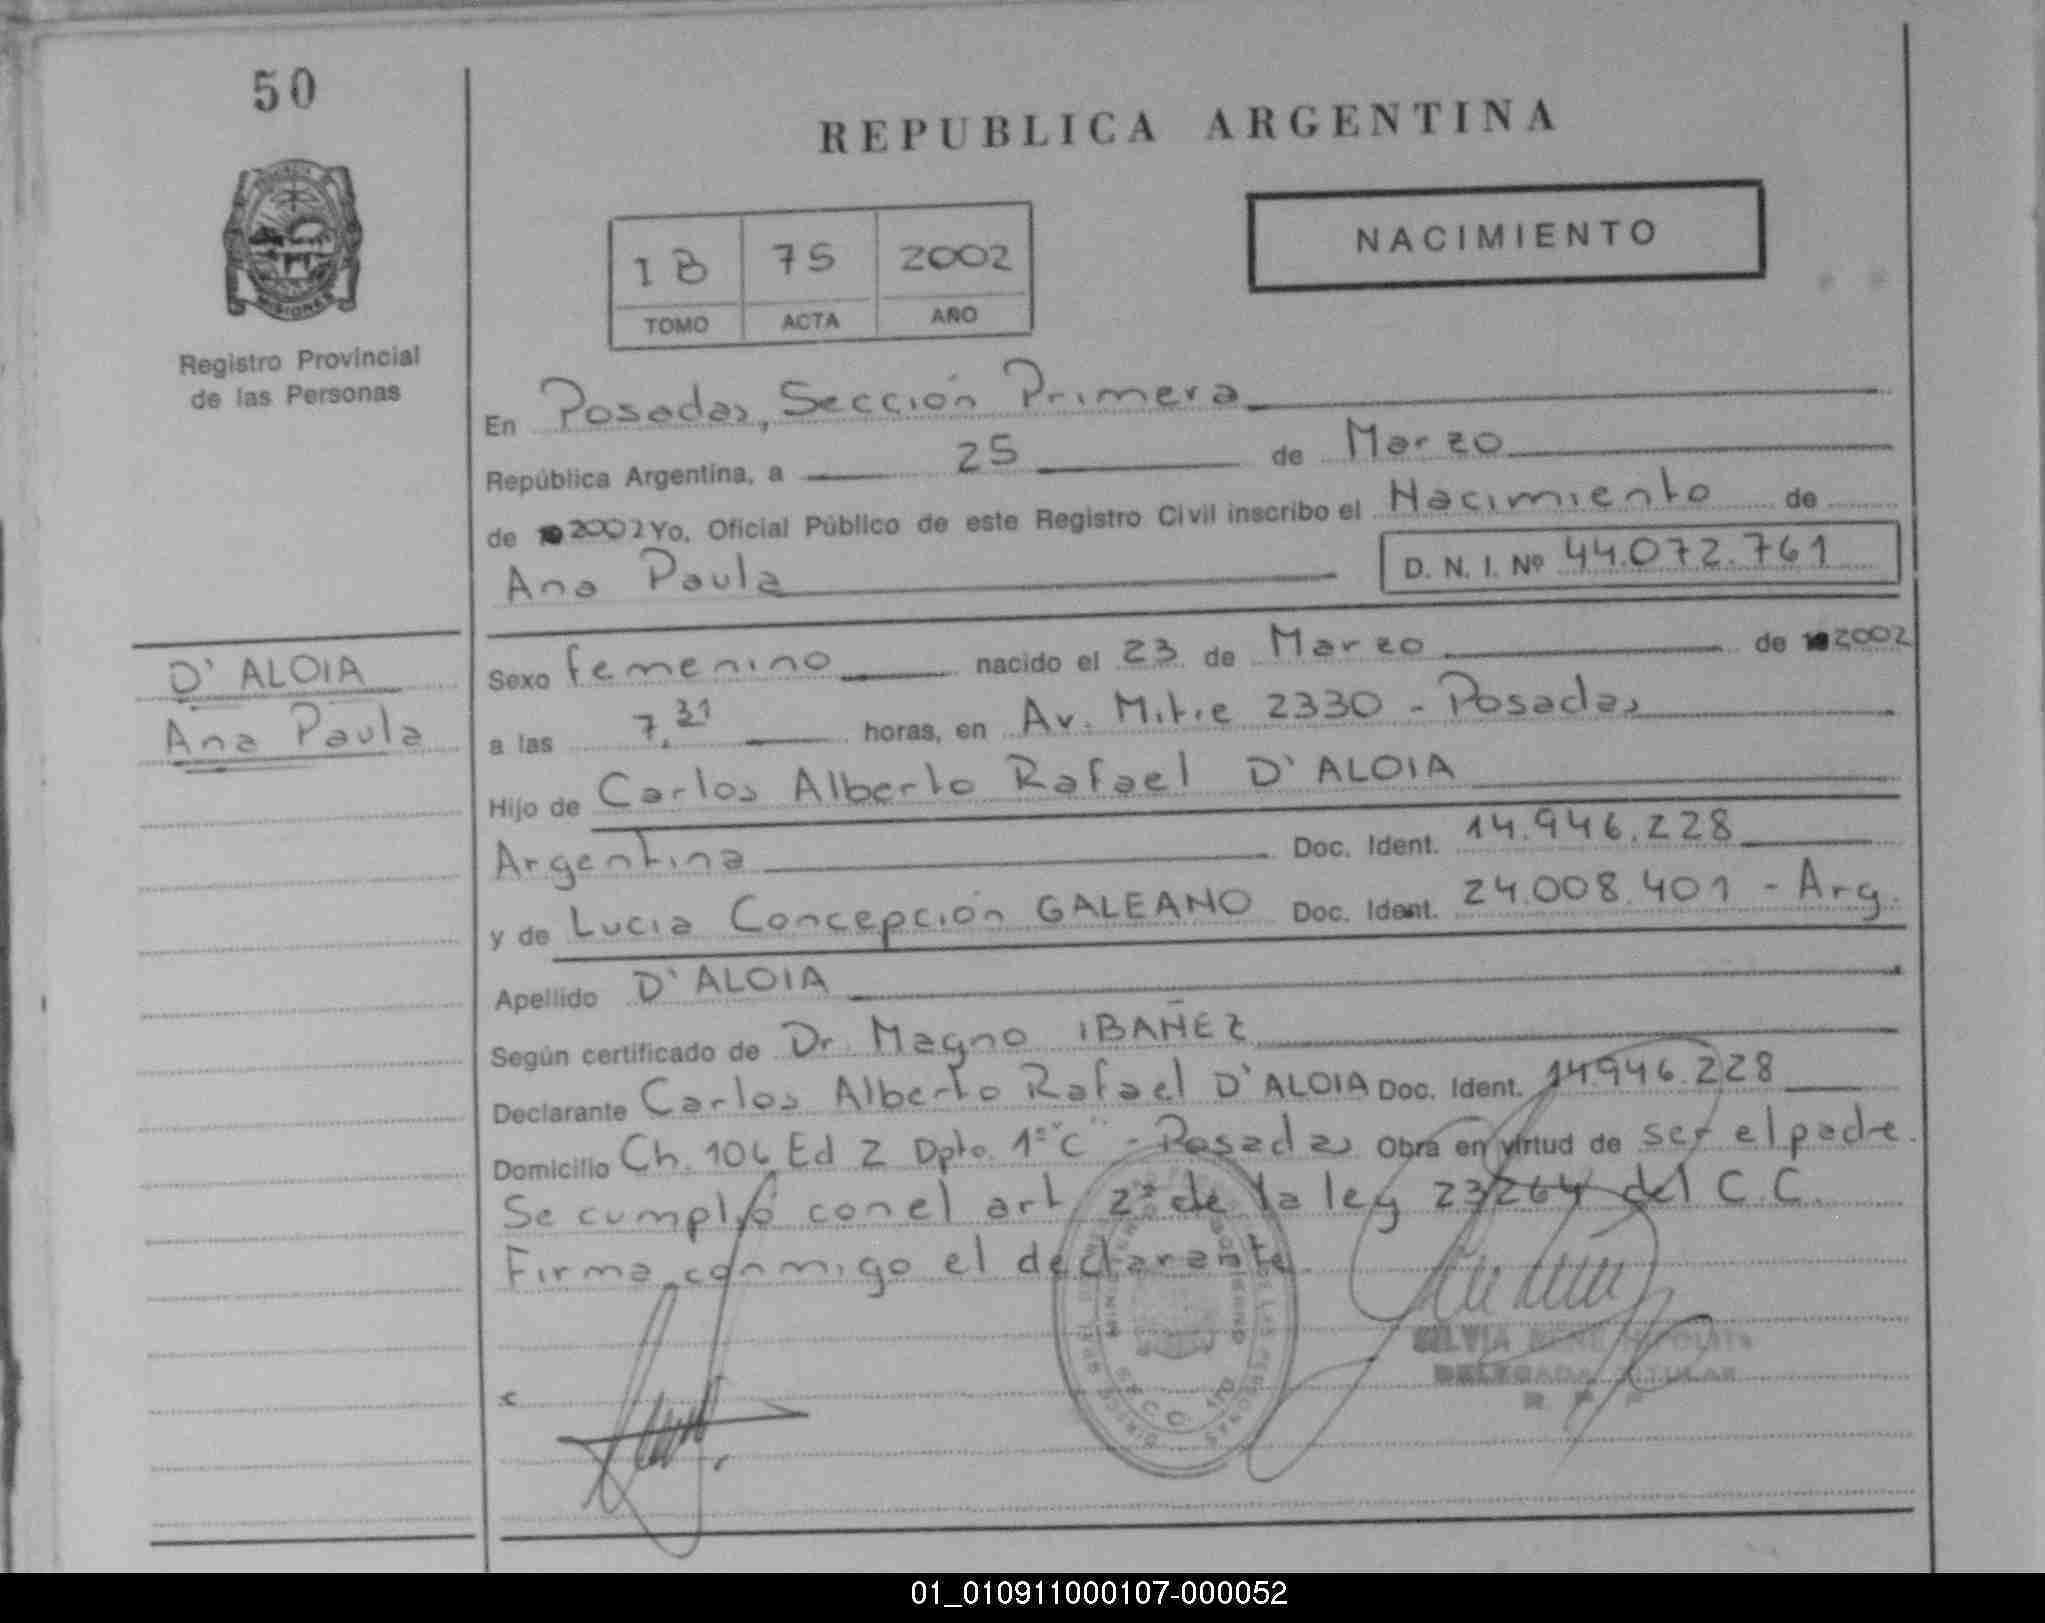 50
REPUBLICA ARGENTINA
NACIMIENTO
1B 75 2002
TOMO ACTA AÑO
Registro Provincial
de las Personas
En Posadas, Sección Primera
República Argentina, a 25 de Marzo
de 2002 Yo, Oficial Público de este Registro Civil inscribo el Nacimiento de
Ana Paula D. N. I. Nº 44.072.761
D'ALOIA
Ana Paula
Sexo femenino nacido el 23 de Marzo de 2002
a las 7,31 horas, en Av. Mitre 2330 - Posadas
Hijo de Carlos Alberto Rafael D'ALOIA
Argentina Doc. Ident. 14.946.228
y de Lucia Concepción GALEANO Doc. Ident. 24.008.401 - Arg.
Apellido D'ALOIA
Según certificado de Dr. Magno IBAÑEZ
Declarante Carlos Alberto Rafael D'ALOIA Doc. Ident. 14.946.228
Domicilio Ch. 106 Ed 2 Dpto. 1º "C" - Posadas Obra en virtud de ser el padre.
Se cumplió con el art 2º de la ley 23264 del C.C.
Firma conmigo el declarante
SILVIA
DELEGADA TITULAR
01_010911000107-000052